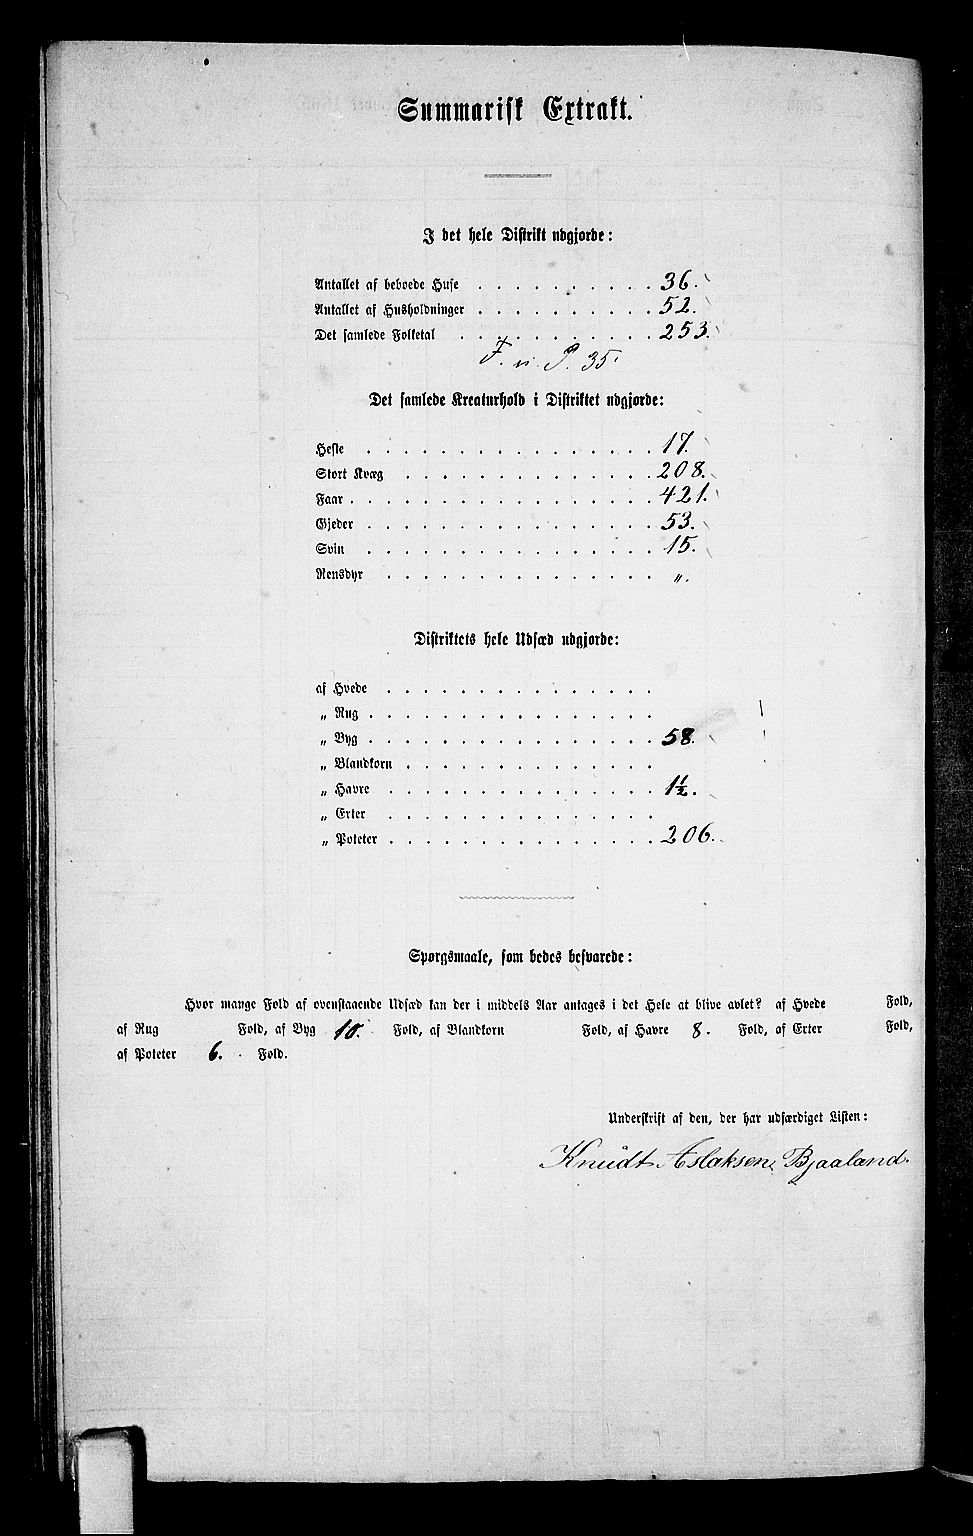 Summarisk Extrakt.
I det hele Distrikt udgjorde:
Antallet af beboede Huse . . . . . . . . . . 36.
Antallet af Husholdninger . . . . . . . . . . 52.
Det samlede Folketal . . . . . . . . . . . 253.
F. n. P. 35.
Det samlede Kreaturhold i Distriktet udgjorde:
Heste . . . . . . . . . . . . . . . . 17.
Stort Kvæg . . . . . . . . . . . . . . 208.
Faar . . . . . . . . . . . . . . . . . 421.
Gjeder . . . . . . . . . . . . . . . . 53.
Svin . . . . . . . . . . . . . . . . 15.
Rensdyr . . . . . . . . . . . . . . . „.
Distriktets hele Udsæd udgjorde:
af Hvede . . . . . . . . . . . . . . .
„ Rug . . . . . . . . . . . . . . . .
„ Byg . . . . . . . . . . . . . . . . 58.
„ Blandkorn . . . . . . . . . . . . . .
„ Havre . . . . . . . . . . . . . . . 1½.
„ Erter . . . . . . . . . . . . . . .
„ Poteter . . . . . . . . . . . . . . . 206.
Spørgsmaale, som bedes besvarede:
Hvor mange Fold af ovenstaaende Udsæd kan der i middels Aar antages i det Hele at blive avlet? af Hvede Fold,
af Rug Fold, af Byg 10. Fold, af Blandkorn Fold, af Havre 8. Fold, af Erter Fold,
af Poteter 6. Fold.
Underskrift af den, der har udfærdiget Listen:
Knudt Aslaksen Bjaaland.